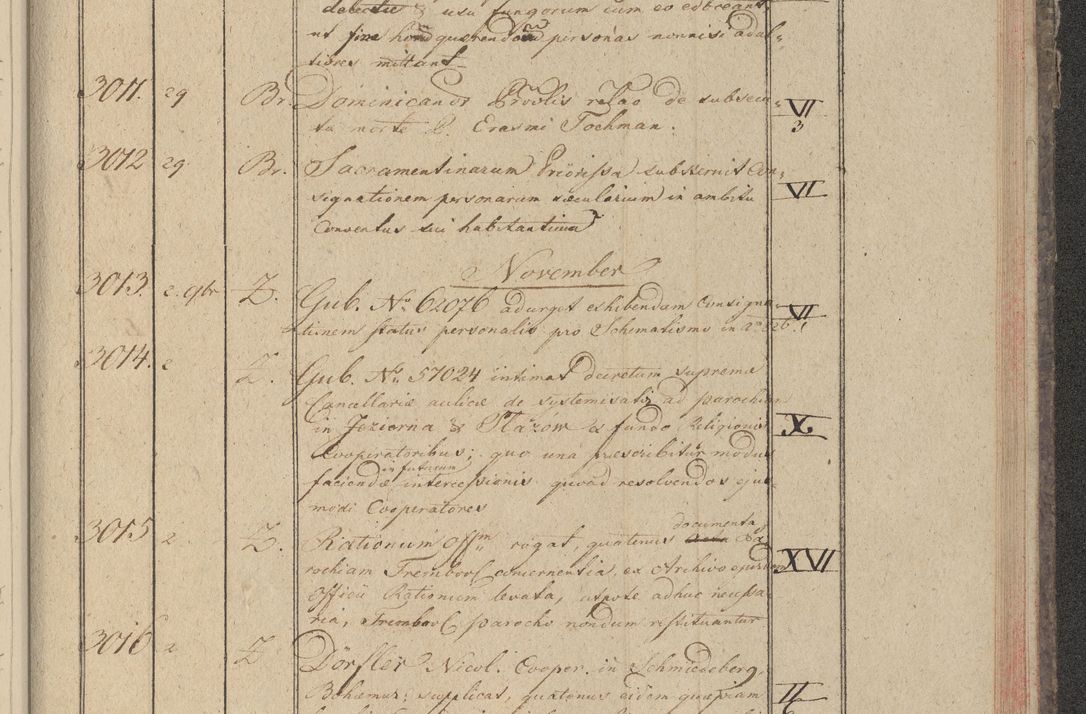 delectu & usu fungorum cum eo edoceant
ut fine personas nonnisi adul-
tiores mittant
3011. eq Br. Dominicanor Provlis relao de subsecu- VI
ta morte P. Erasmi Tochman. 3
3012 eq Br. Sacramentinarum Priorissa substernit Con-
signationem personarum sæcularium in ambitu VI
Conventus sui habitantium
November
3013. e. 9br Z. Gub. No. 62076 adurget exhibendam Consigna- VI
tionem status personalis pro Schematismo in
3014. e Z. Gub. No. 57024 intimat decretum supremæ
Cancellariæ aulicæ de systemisatis ad parochiam
in Jeziorna & Płazow ex fundo Religionis X
Cooperatoribus; quo una præscribitur modus
in futurum
faciendæ intercessionis quoad resolvendos ejus-
modi Cooperatores
3015 2 Z. Rationum Offm rogat, quatenus documenta Pa-
rochiam Trembovl concernentia, ex Archivo ejusdem XVI
Officii Rationum levata, utpote adhuc necessa-
ria, Trembovl parocho nondum restituantur
3016 2 Z Dörfler Nicol. Cooper. in Schmiedeberg,
Bohemus; supplicat, quatenus eidem quæpiam II